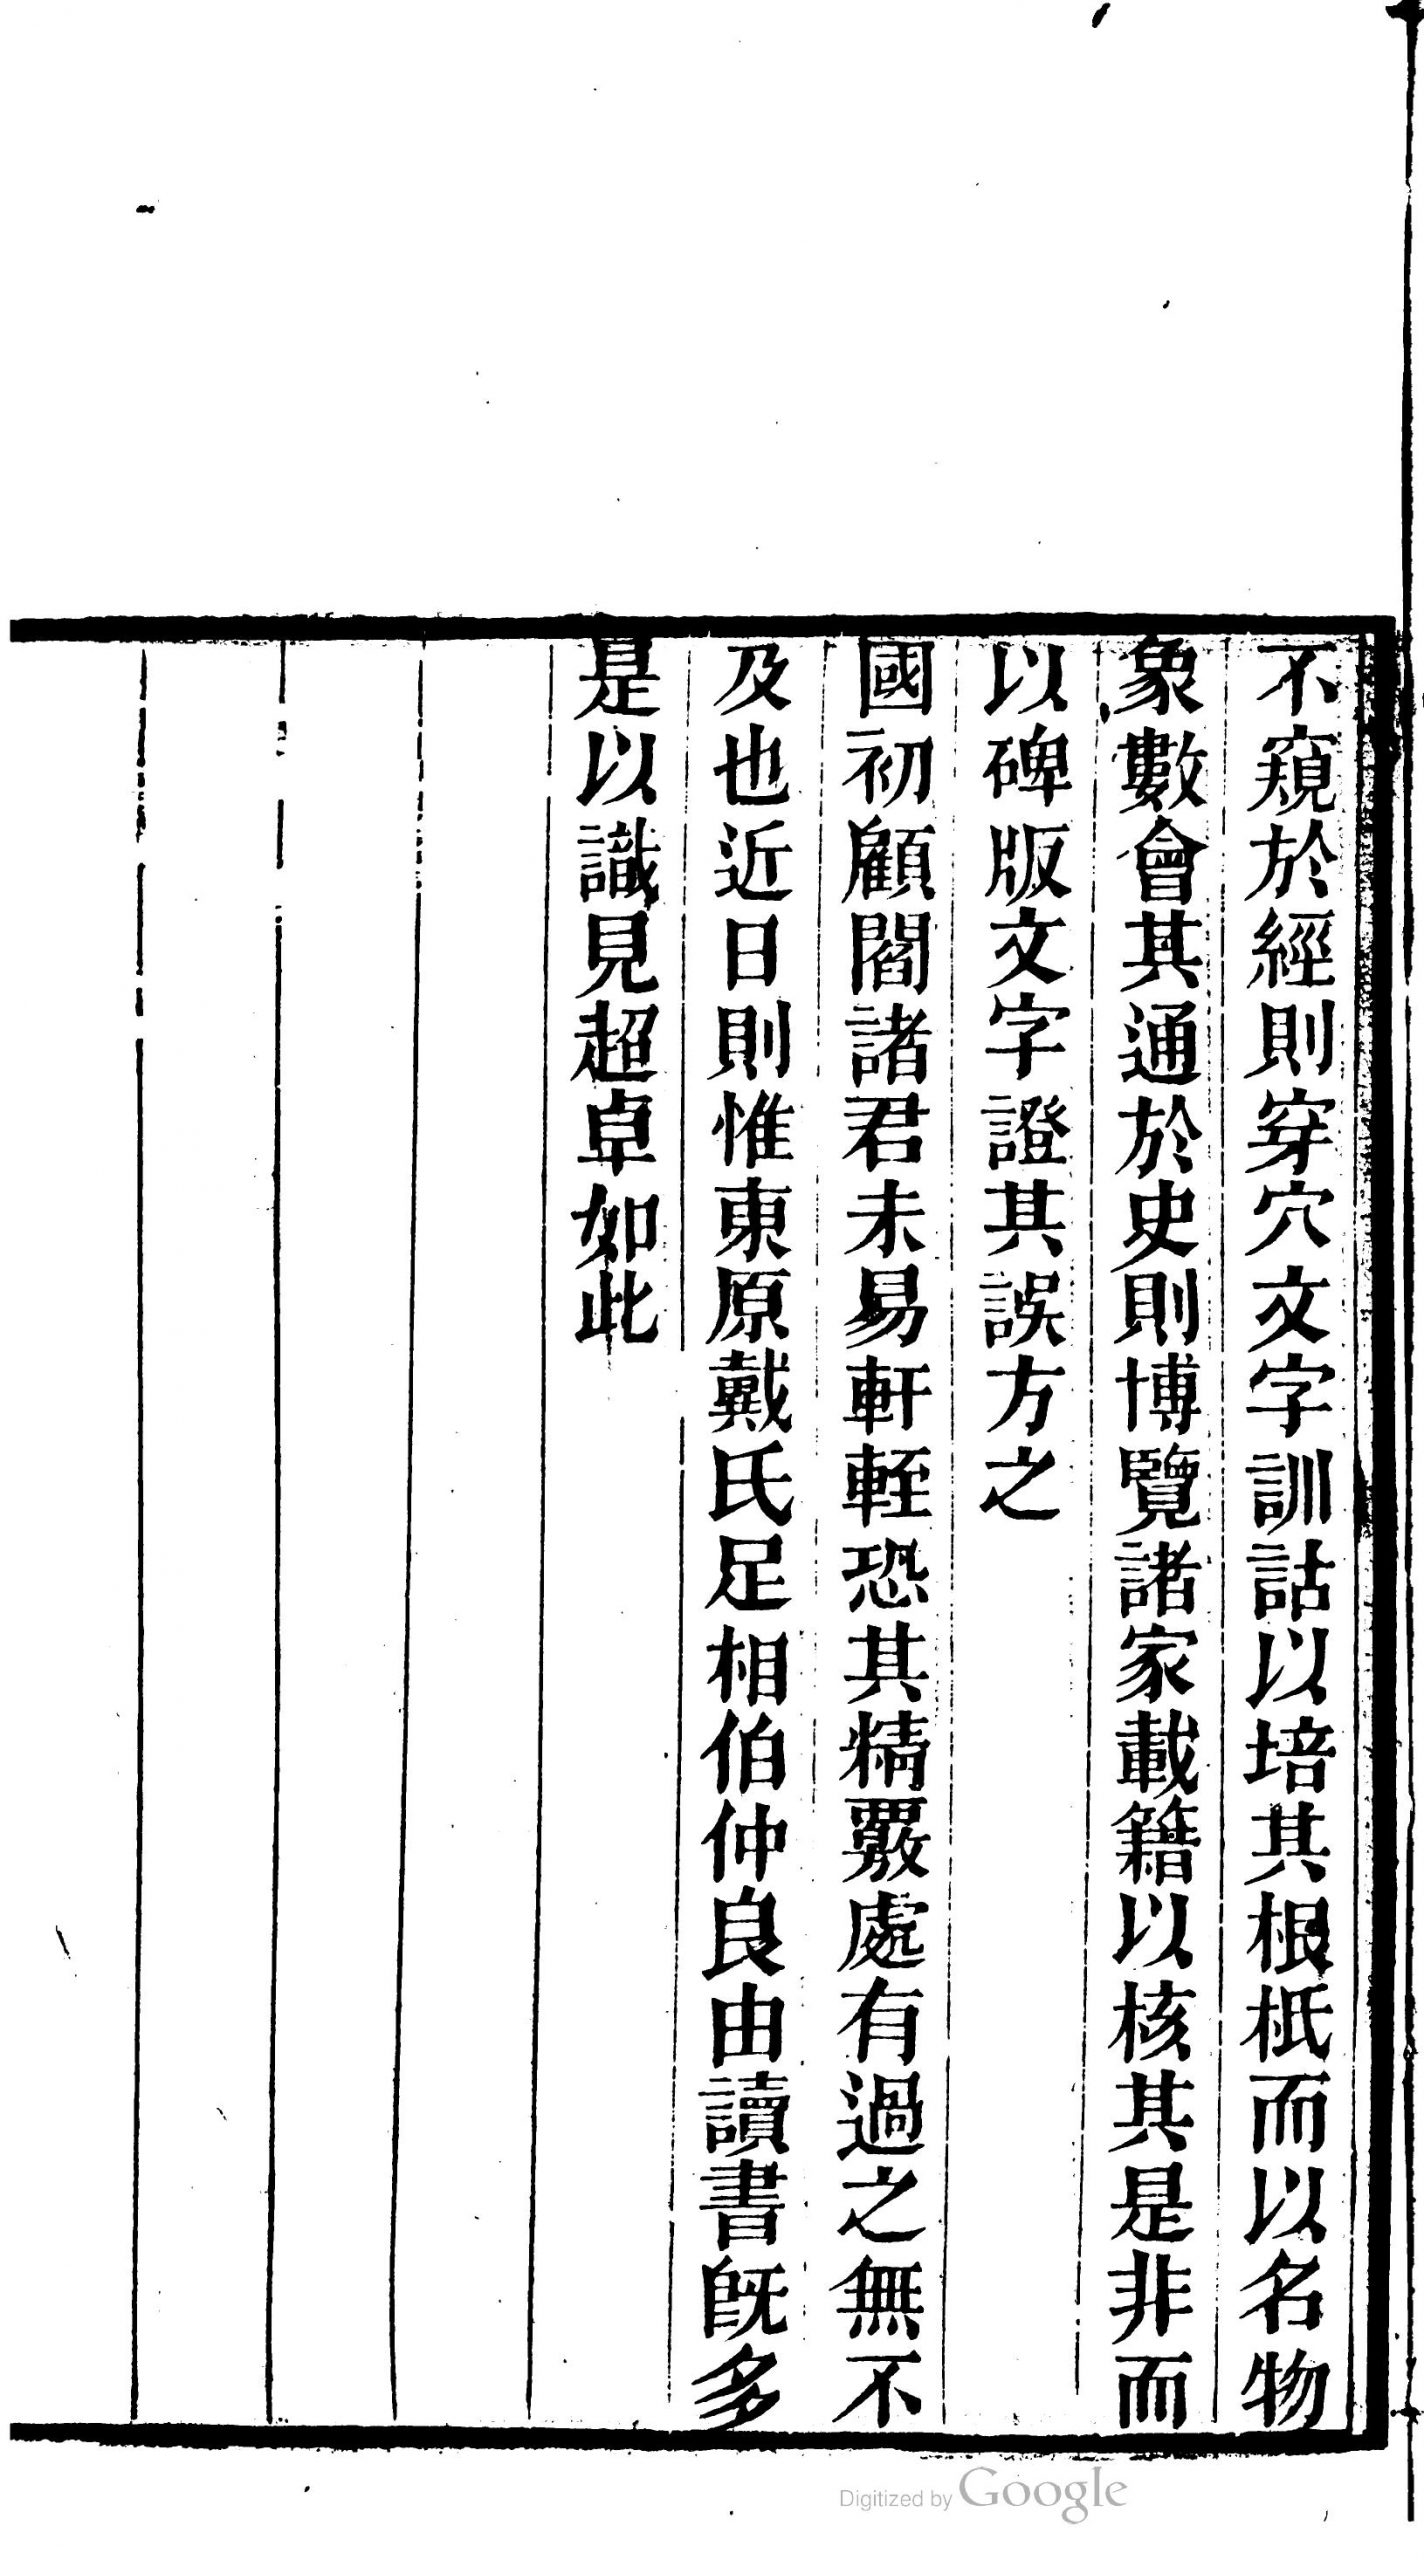 不窺於經則穿穴文字訓詁以培其根柢而以名物
象數會其通於史則博覽諸家載籍以核其是非而
以碑版文字證其誤方之
國初顧閻諸君未易軒輊恐其精覈處有過之無不
及也近日則惟東原戴氏足相伯仲良由讀書旣多
是以識見超卓如此
Digitized by Google